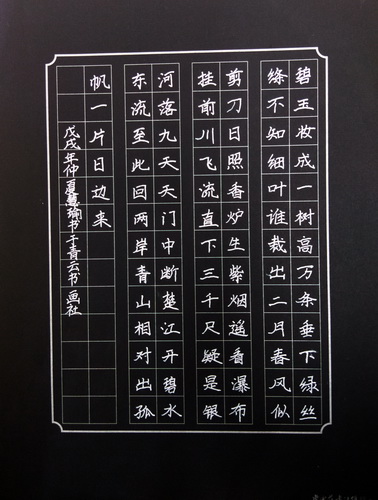 碧玉妆成一树高万条垂下绿丝
绦不知细叶谁裁出二月春风似
剪刀日照香炉生紫烟遥看瀑布
挂前川飞流直下三千尺疑是银
河落九天天门中断楚江开碧水
东流至此回两岸青山相对出孤
帆一片日边来
戊戌年仲夏慧瑜书于青云书画社